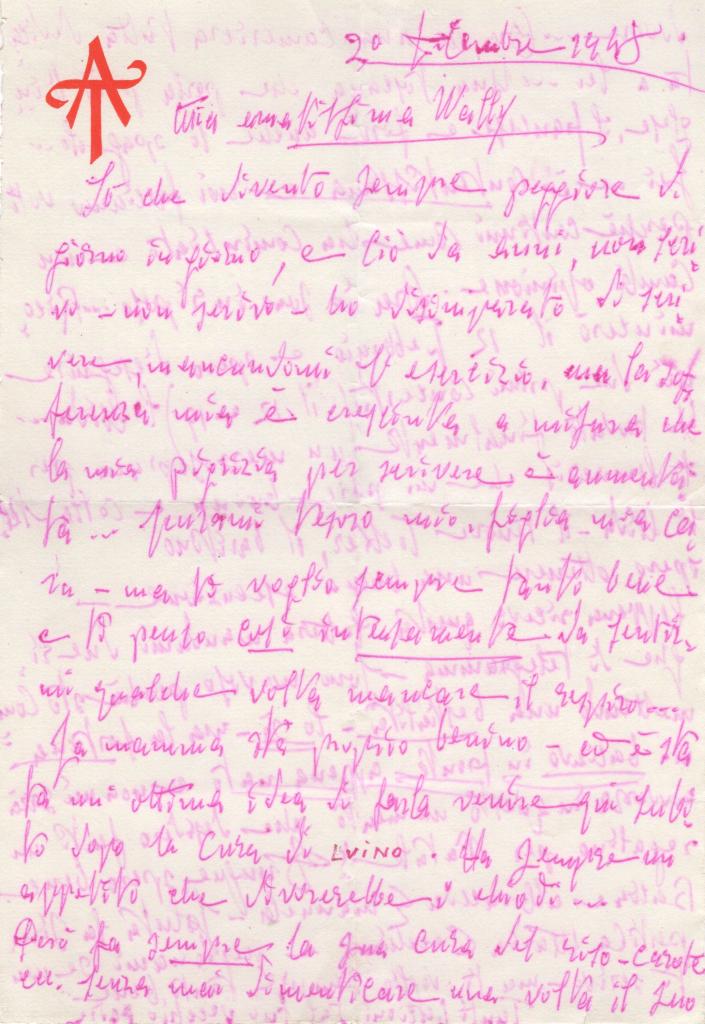 20 Settembre 1948
Mia amatissima Wally
Io che divento sempre peggiore di
giorno in giorno, e ciò da anni, non scri
vo - non scrivo - ho disimparato di scri
vere, mancandomi l'esercizio, ma la sof
ferenza mia è cresciuta a misura che
la mia pigrizia per scrivere è aumenta
ta ... tesoro mio, figlia mia ca
ra - ma ti voglio sempre tanto bene
e ti penso così intensamente da sentir
mi qualche volta mancare il respiro....
La mamma sta proprio benino - ed è sta
ta un'ottima idea di farla venire qui subi
to dopo la cura di LVINO. Ha sempre un
appetito che divorerebbe i chiodi...
Però fa sempre la sua cura del riso-carote
ecc. senza mai dimenticare una volta il suo